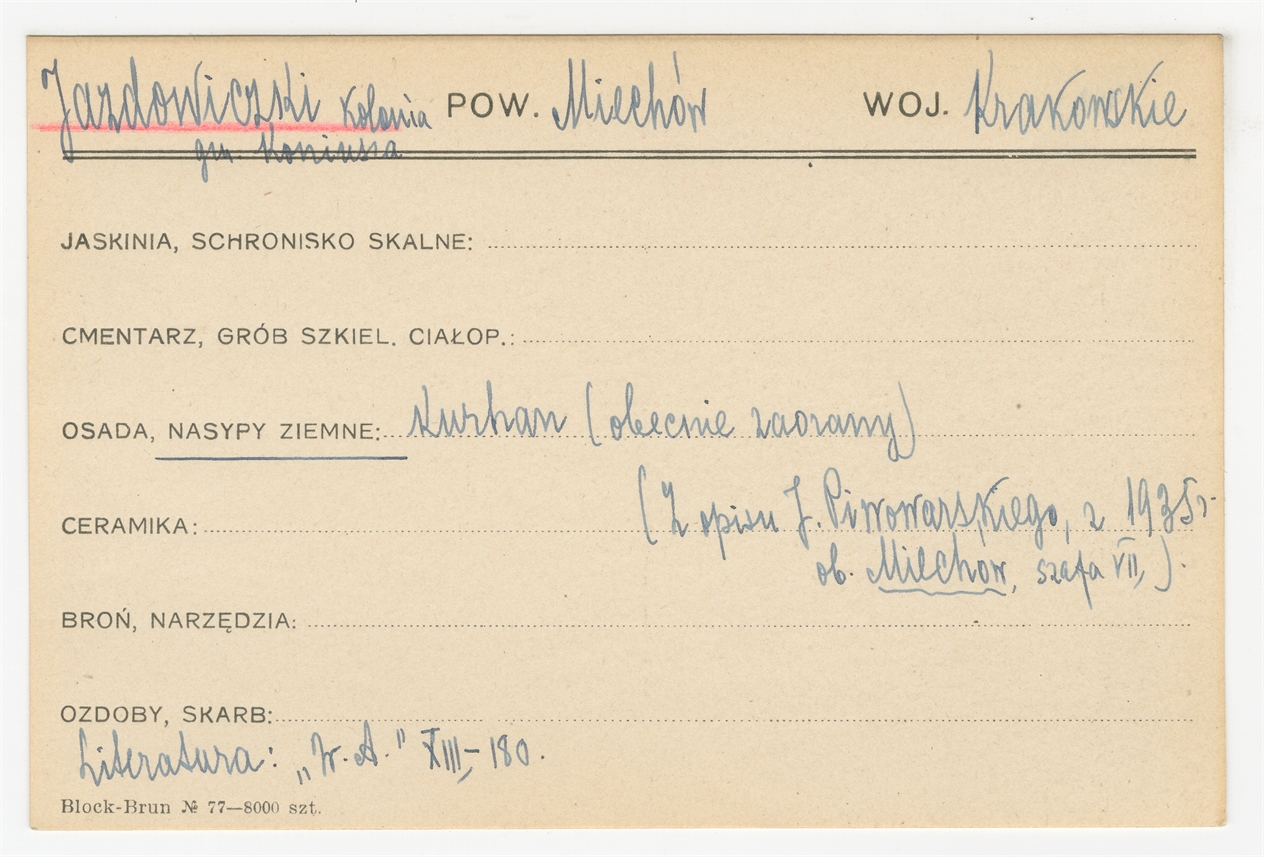 Jazdowiczki Kolonia POW. Miechów WOJ. Krakowskie
gm. Koniusza
JASKINIA, SCHRONISKO SKALNE:
CMENTARZ, GRÓB SZKIEL. CIAŁOP.:
OSADA, NASYPY ZIEMNE: Kurhan (obecnie zaorany)
CERAMIKA: (Z opisu J. Piwowarskiego, z 1935 r.
ob. Miechów, szafa VII,).
BROŃ, NARZĘDZIA:
OZDOBY, SKARB:
Literatura: „W. A." XIII,–180.
Block-Brun № 77—8000 szt.